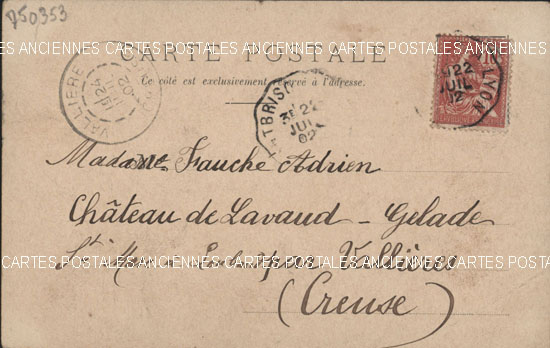 850353
CARTES POSTALES ANCIENNES CARTES POSTALES ANCIENNES CARTES POSTALES ANCIENNES
CARTE POSTALE
Ce côté est exclusivement réservé à l'adresse.
VALLIERE
24
JUIL
02
MONTBRISON
3E 22
JUIL
02
LYON
22
JUIL
02
Madame Fauche Adrien
Château de Lavaud - Gelade
St Marc
Vallière
CARTES POSTALES ANCIENNES CARTES POSTALES ANCIENNES CARTES POSTALES ANCIENNES
(Creuse)